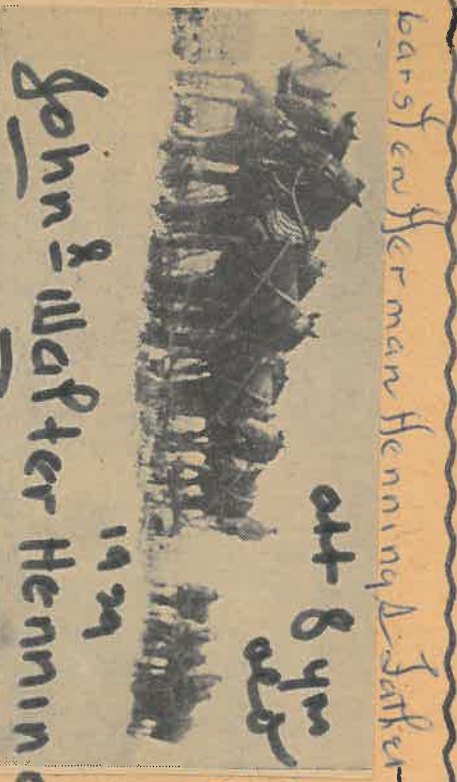 Carsten Herman Hennings Father
att 8 ym
old
1929
John & Walter Hennin